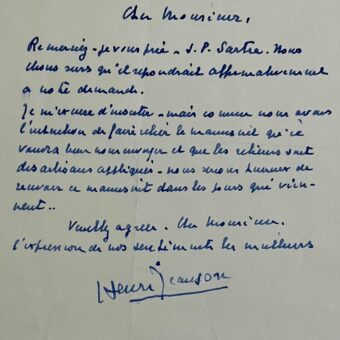 Cher Monsieur,
Remerciez - je vous prie - J. P. Sartre. Nous
étions surs qu'il répondrait affirmativement
à notre demande.
Je m'excuse d'insister - mais comme nous avons
l'intention de faire relier le manuscrit qu'il
voudra bien nous envoyer et que les relieurs sont
des artisans appliqués - nous serons heureux de
recevoir ce manuscrit dans les jours qui vien-
nent..
Veuillez agréer. Cher Monsieur.
l'expression de nos sentiments les meilleurs
Henri Jeanson